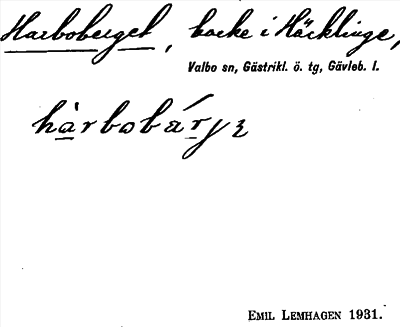 Harboberget, backe i Häcklinge,
Valbo sn, Gästrikl. ö. tg, Gävleb. l.
EMIL LEMHAGEN 1931.